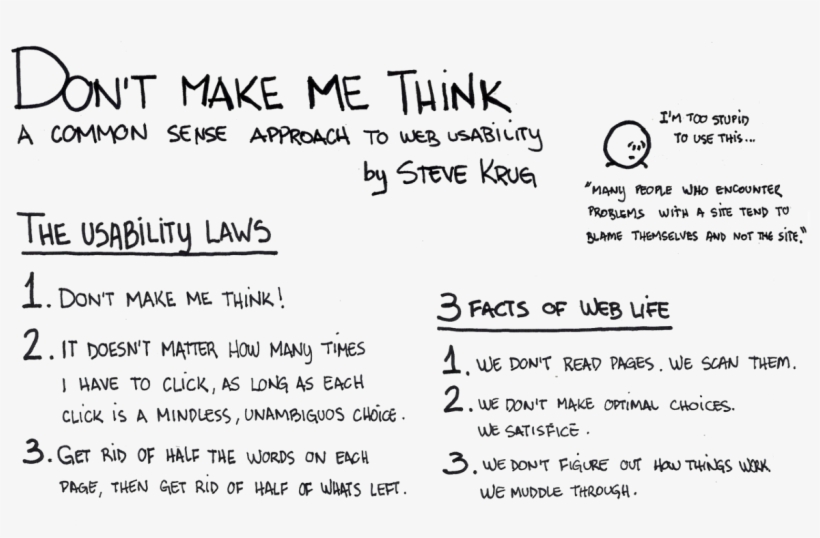 DON'T MAKE ME THINK
A COMMON SENSE APPROACH TO WEB USABILITY
by STEVE KRUG
I'M TOO STUPID
TO USE THIS...
"MANY PEOPLE WHO ENCOUNTER
PROBLEMS WITH A SITE TEND TO
BLAME THEMSELVES AND NOT THE SITE."
THE USABILITY LAWS
1. DON'T MAKE ME THINK!
2. IT DOESN'T MATTER HOW MANY TIMES
I HAVE TO CLICK, AS LONG AS EACH
CLICK IS A MINDLESS, UNAMBIGUOS CHOICE.
3. GET RID OF HALF THE WORDS ON EACH
PAGE, THEN GET RID OF HALF OF WHATS LEFT.
3 FACTS OF WEB LIFE
1. WE DON'T READ PAGES. WE SCAN THEM.
2. WE DON'T MAKE OPTIMAL CHOICES.
WE SATISFICE.
3. WE DON'T FIGURE OUT HOW THINGS WORK
WE MUDDLE THROUGH.